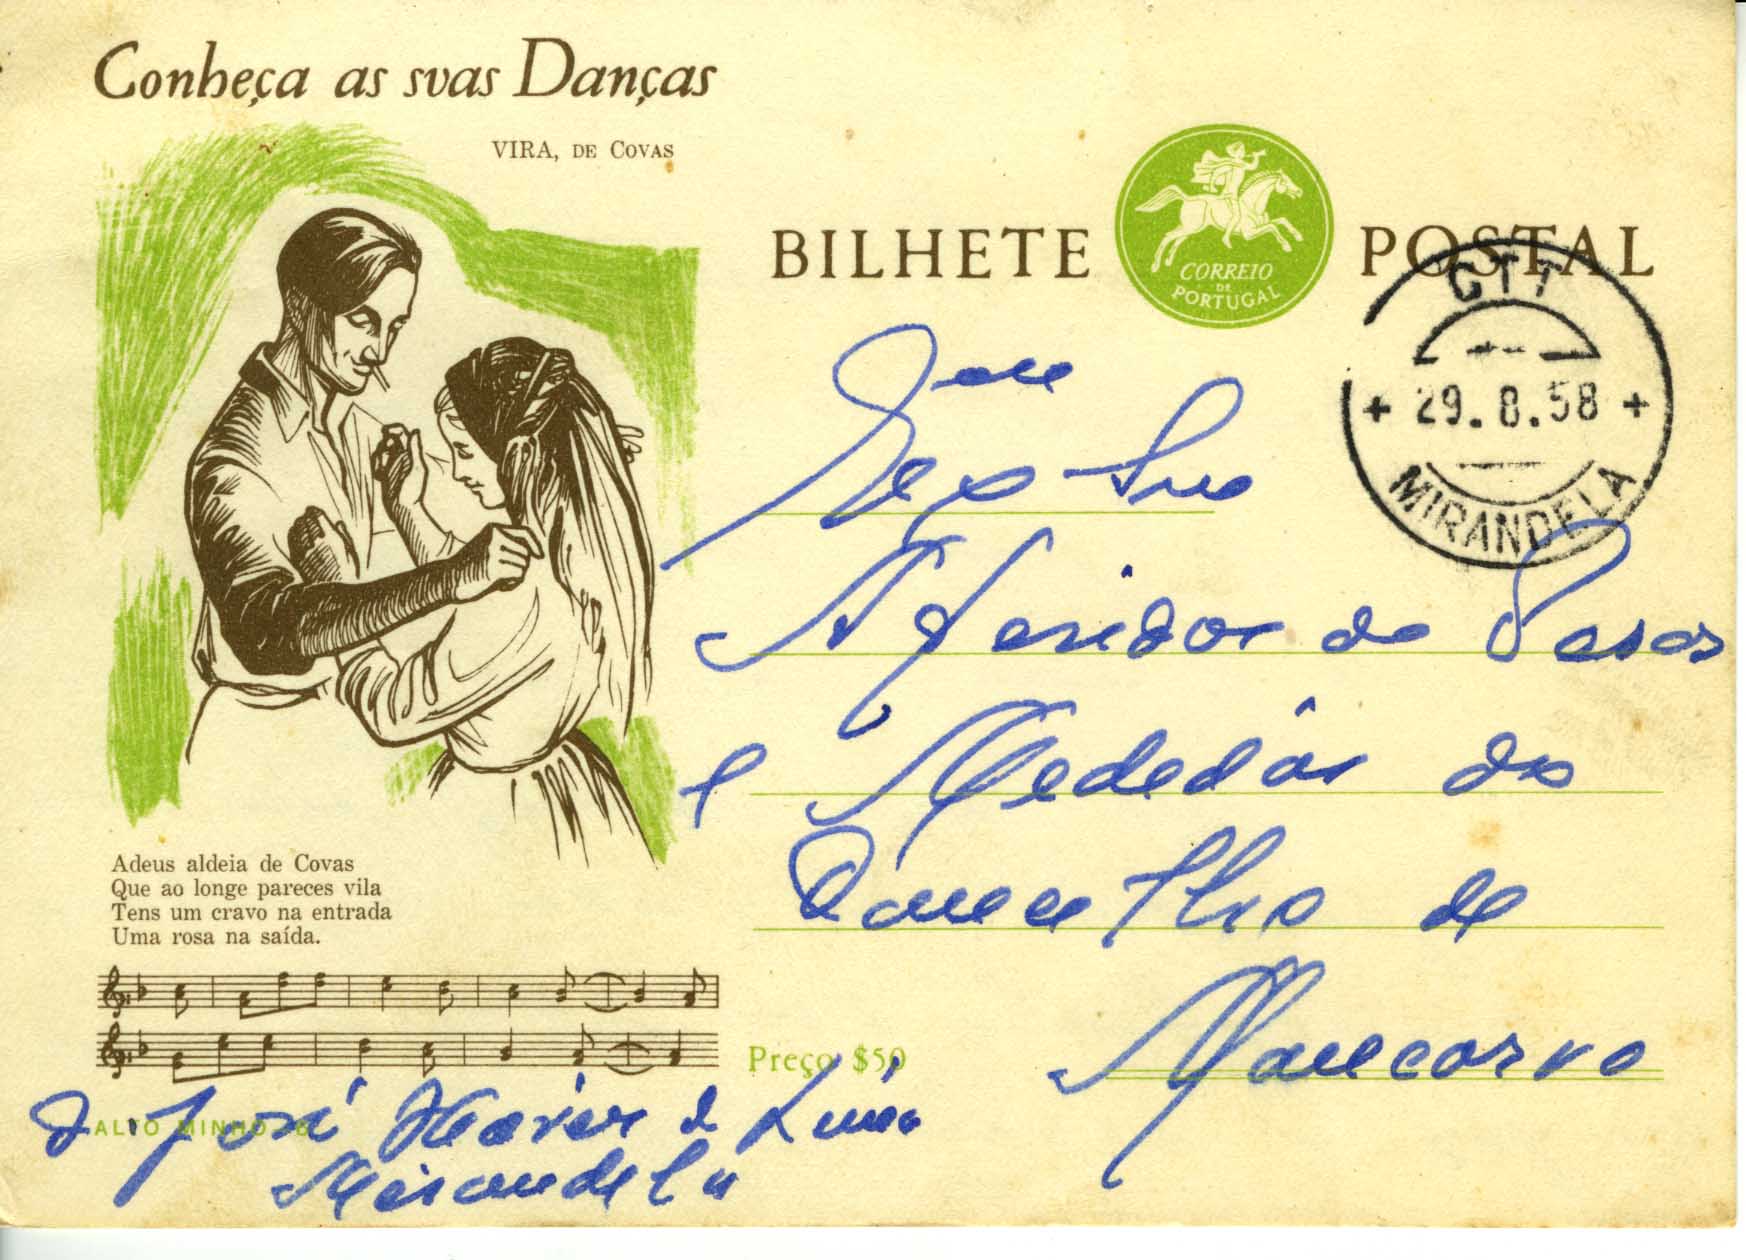 Conheça as suas Danças
VIRA, DE COVAS
BILHETE POSTAL
CORREIO
DE
PORTUGAL
CTT
29.8.58
MIRANDELA
Exmo Snr
Aferidor de Pesos
e Medidas do
Concelho de
Moncorvo
Adeus aldeia de Covas
Que ao longe pareces vila
Tens um cravo na entrada
Uma rosa na saída.
Preço $50
ALTO MINHO
José Xavier de
Mirandela